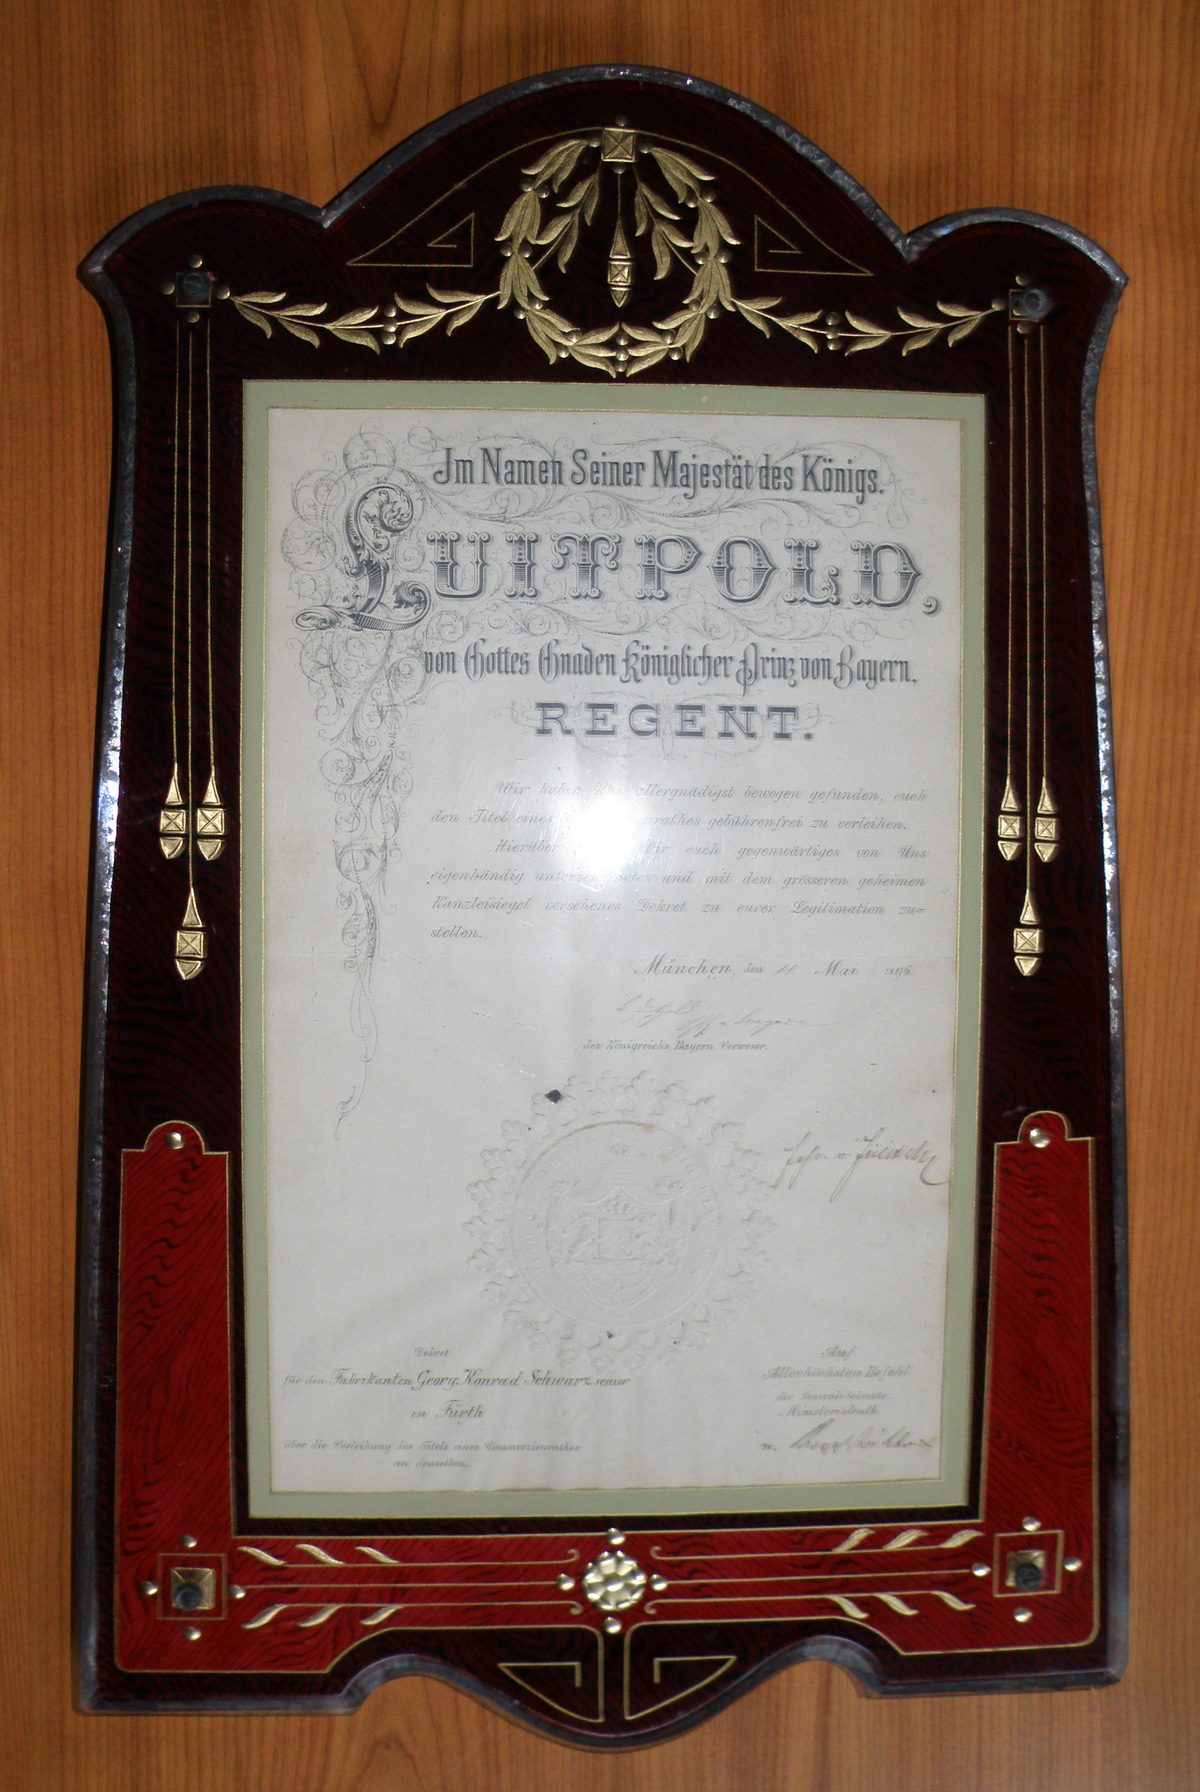 Im Namen Seiner Majestät des Königs.
LUITPOLD,
von Gottes Gnaden Königlicher Prinz von Bayern,
REGENT.
Wir haben Uns allergnädigst bewogen gefunden, euch
den Titel eines gebührenfrei zu verleihen.
Hierüber Wir euch gegenwärtiges von Uns
eigenhändig unterzeichnetes und mit dem grösseren geheimen
Kanzleisiegel versehenes Dekret zu eurer Legitimation zu=
stellen.
München, den 11 Mai 1896.
Luitpold
des Königreichs Bayern Verweser.
Dekret
für den Fabrikanten Georg Konrad Schwarz senior
in Fürth
über die Verleihung des Titels eines Commerzienrathes
an denselben.
Auf
Allerhöchsten Befehl
der General-Sekretär:
Ministerialrath